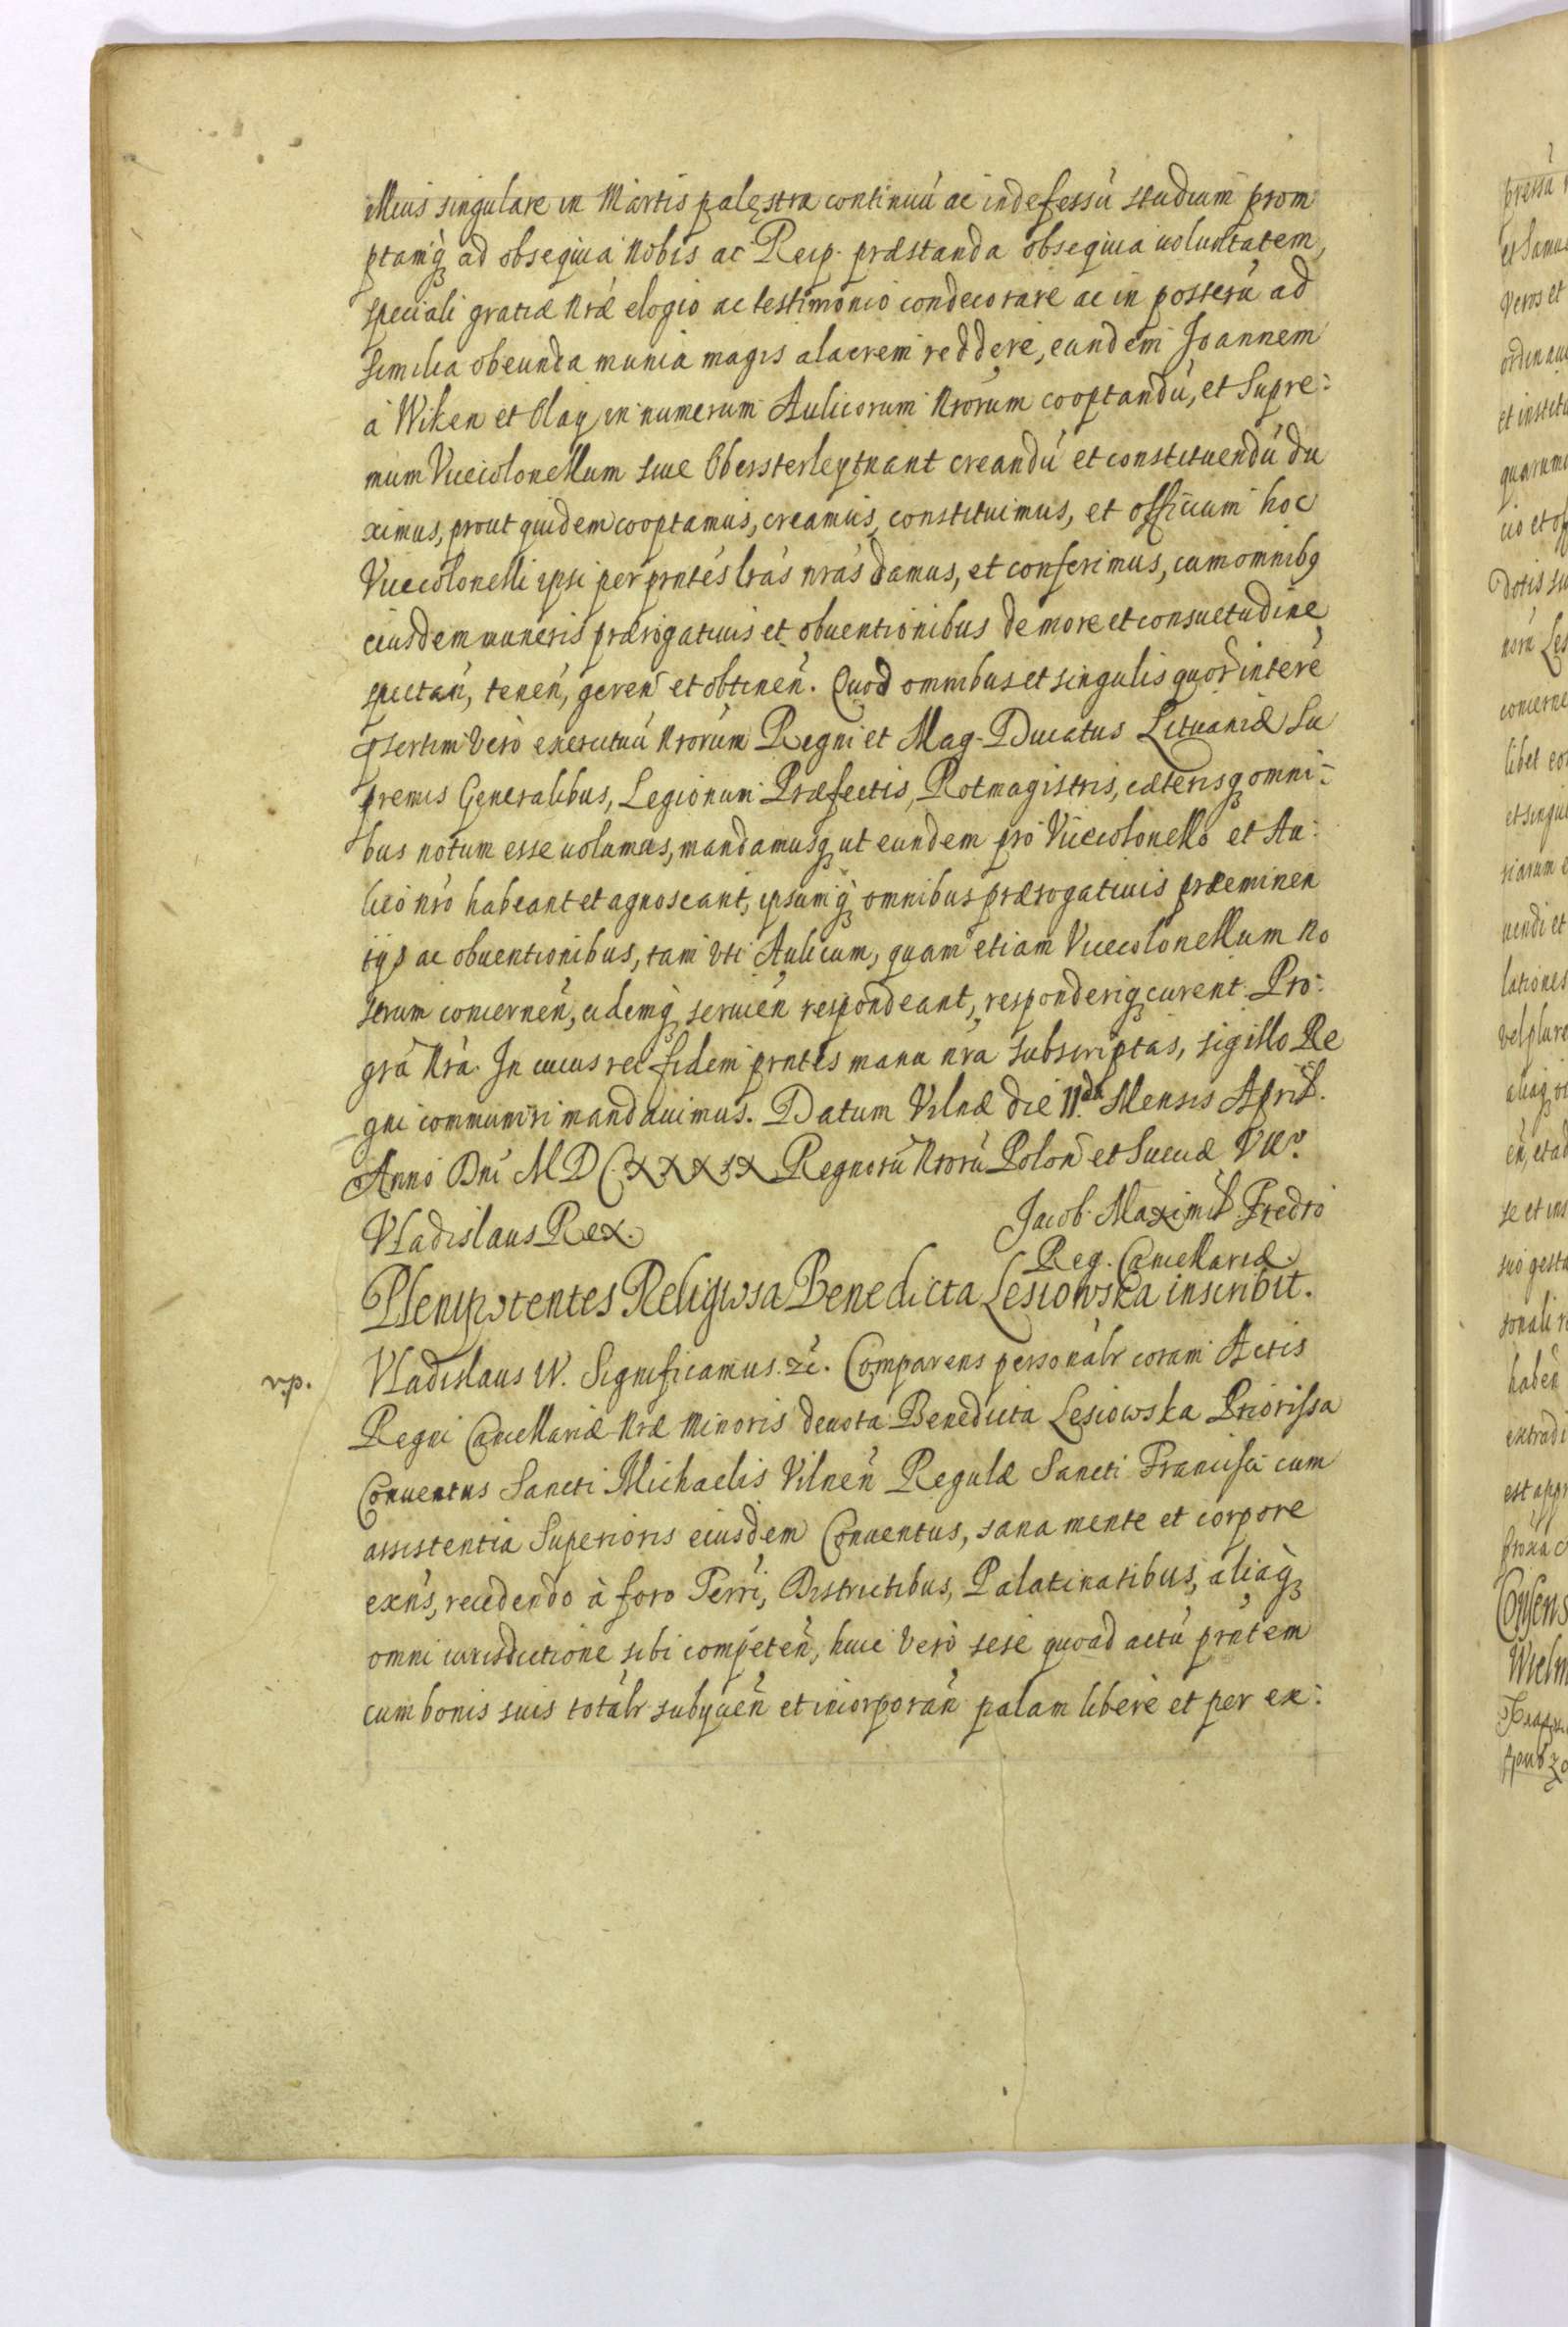 illius singulare in Martis palęstra continuú ac indefessú studium prom
ptamq́ ad obsequia nobis ac Reip. præstanda obsequia uoluntatem,
speciali gratiæ nræ elogio ac testimonio condecorare ac in posterú ad
similia obeunda munia magis alacrem reddere, eundem Joannem
à Wiken et Olay in numerum Aulicorum Nrorum cooptandú, et Supre:
mum Vicecolonellum siue Obersterleytnant creandú et constituendú du
ximus, prout quidem cooptamus, creamus, constituimus, et officium hoc
Vicecolonelli ipsi per prntés lrás nrás damus, et conferimus, cum omnibq
eiusdem muneris prærogatiuis et obuentionibus de more et consuetudine
spectań, teneń, gereń et obtineń. Quod omnibus et singulis quor interé
psertim verò exercituú Nrorum Regni et Mag. Ducatus Lituaniæ Su
premis Generalibus, Legionum Præfectis, Rotmagistris, cæterisq omni:
bus notum esse uolumus, mandamusq ut eundem pro Vicecolonello et Au:
lico nro habeant et agnoscant, ipsumq́ omnibus prærogatiuis præeminen
tijs ac obuentionibus, tam vti Aulicum, quam etiam Vicecolonellum no
strum concerneń, eidemq́ seruień respondeant, responderiq curent. Pro
grã Nrã. In cuius rei fidem prntes manu nra subscriptas, sigillo Re
gni communiri mandauimus. Datum Vilnæ die II.da Mensis April.
Anno Dni M D C XXXIX Regnorú Nrorú Polon et Sueciæ VII.o
Vladislaus Rex. Jacob. Maximil Fredro
Reg. Cancellariæ.
Plenipotentes Religiosa Benedicta Lesiowska inscribit.
vp. Vladislaus IV. Significamus. &c. Comparens personalr coram Actis
Regni Cancellariæ Nræ Minoris deuota Benedicta Lesiowska Priorissa
Conuentus Sancti Michaelis Vilneń Regulæ Sancti Francisci cum
assistentia Superioris eiusdem Conuentus, sana mente et corpore
exńs, recedendo à foro Terri, Districtibus, Palatinatibus, aliaq́
omni iurisdictione sibi competeń, huic verò sese quoad actú prntem
cum bonis suis totalr subijcień et incorporań palam liberè et per ex: